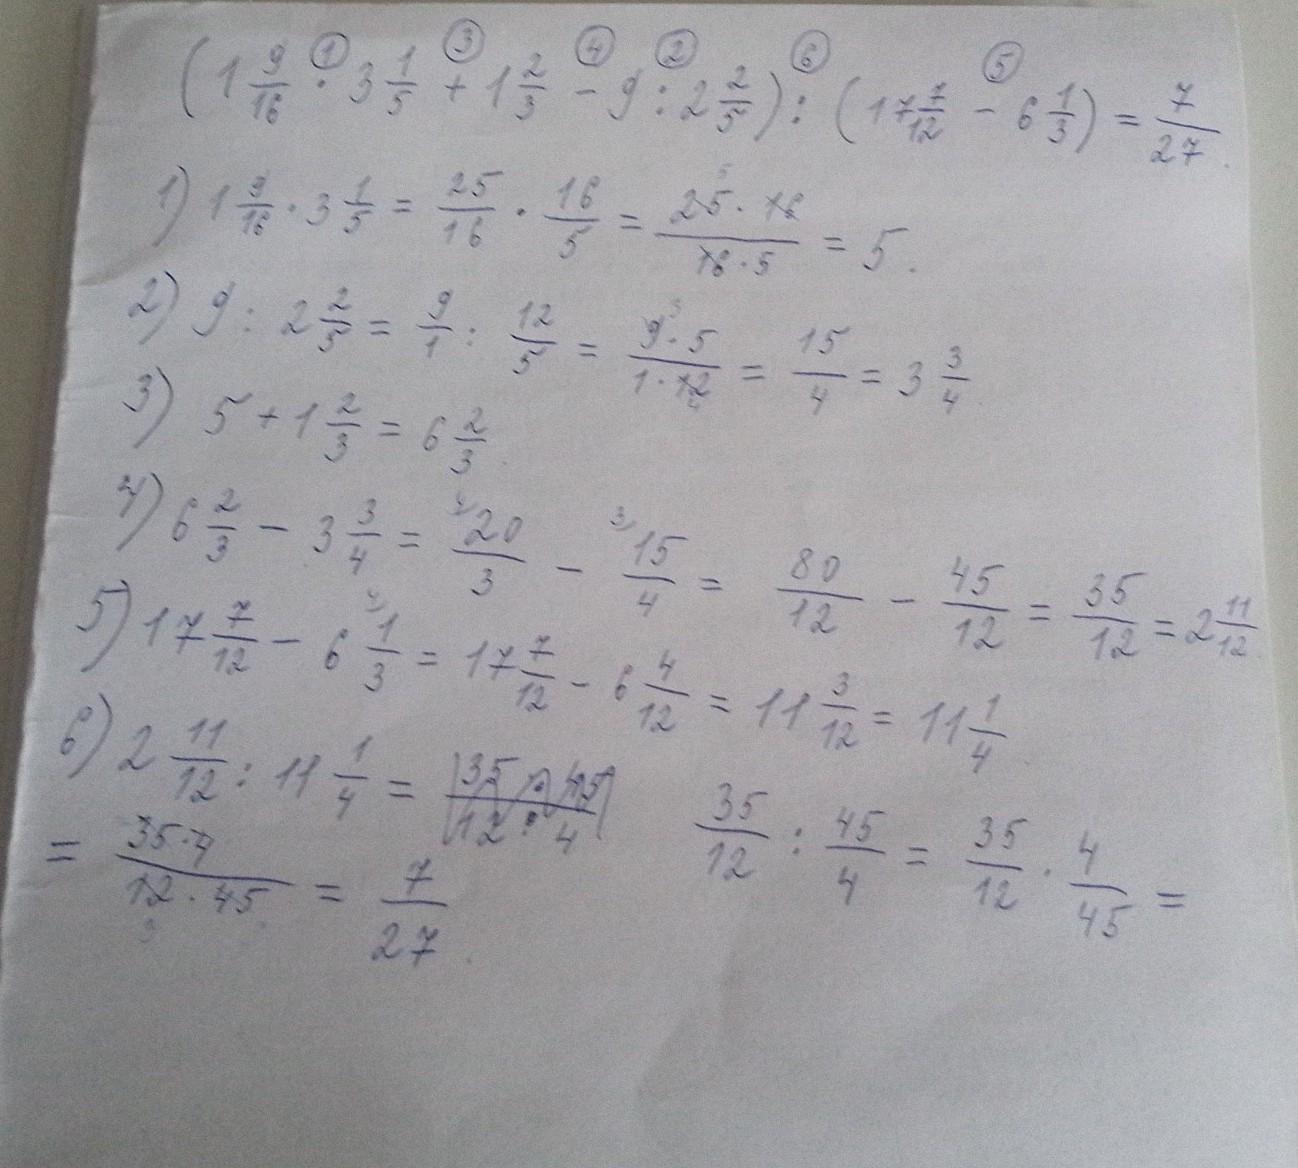 (1 9/16 · 3 1/5 + 1 2/3 - 9 : 2 2/5) : (17 7/12 - 6 1/3) = 7/27.
① ③ ④ ② ⑥ ⑤
1) 1 9/16 · 3 1/5 = 25/16 · 16/5 = 25 · 16/16 · 5 = 5.
2) 9 : 2 2/5 = 9/1 : 12/5 = 9 · 5/1 · 12 = 15/4 = 3 3/4.
3) 5 + 1 2/3 = 6 2/3.
4) 6 2/3 - 3 3/4 = 20/3 - 15/4 = 80/12 - 45/12 = 35/12 = 2 11/12.
5) 17 7/12 - 6 1/3 = 17 7/12 - 6 4/12 = 11 3/12 = 11 1/4.
6) 2 11/12 : 11 1/4 = 35/12 : 45/4 = 35/12 · 4/45 =
= 35 · 4/12 · 45 = 7/27.